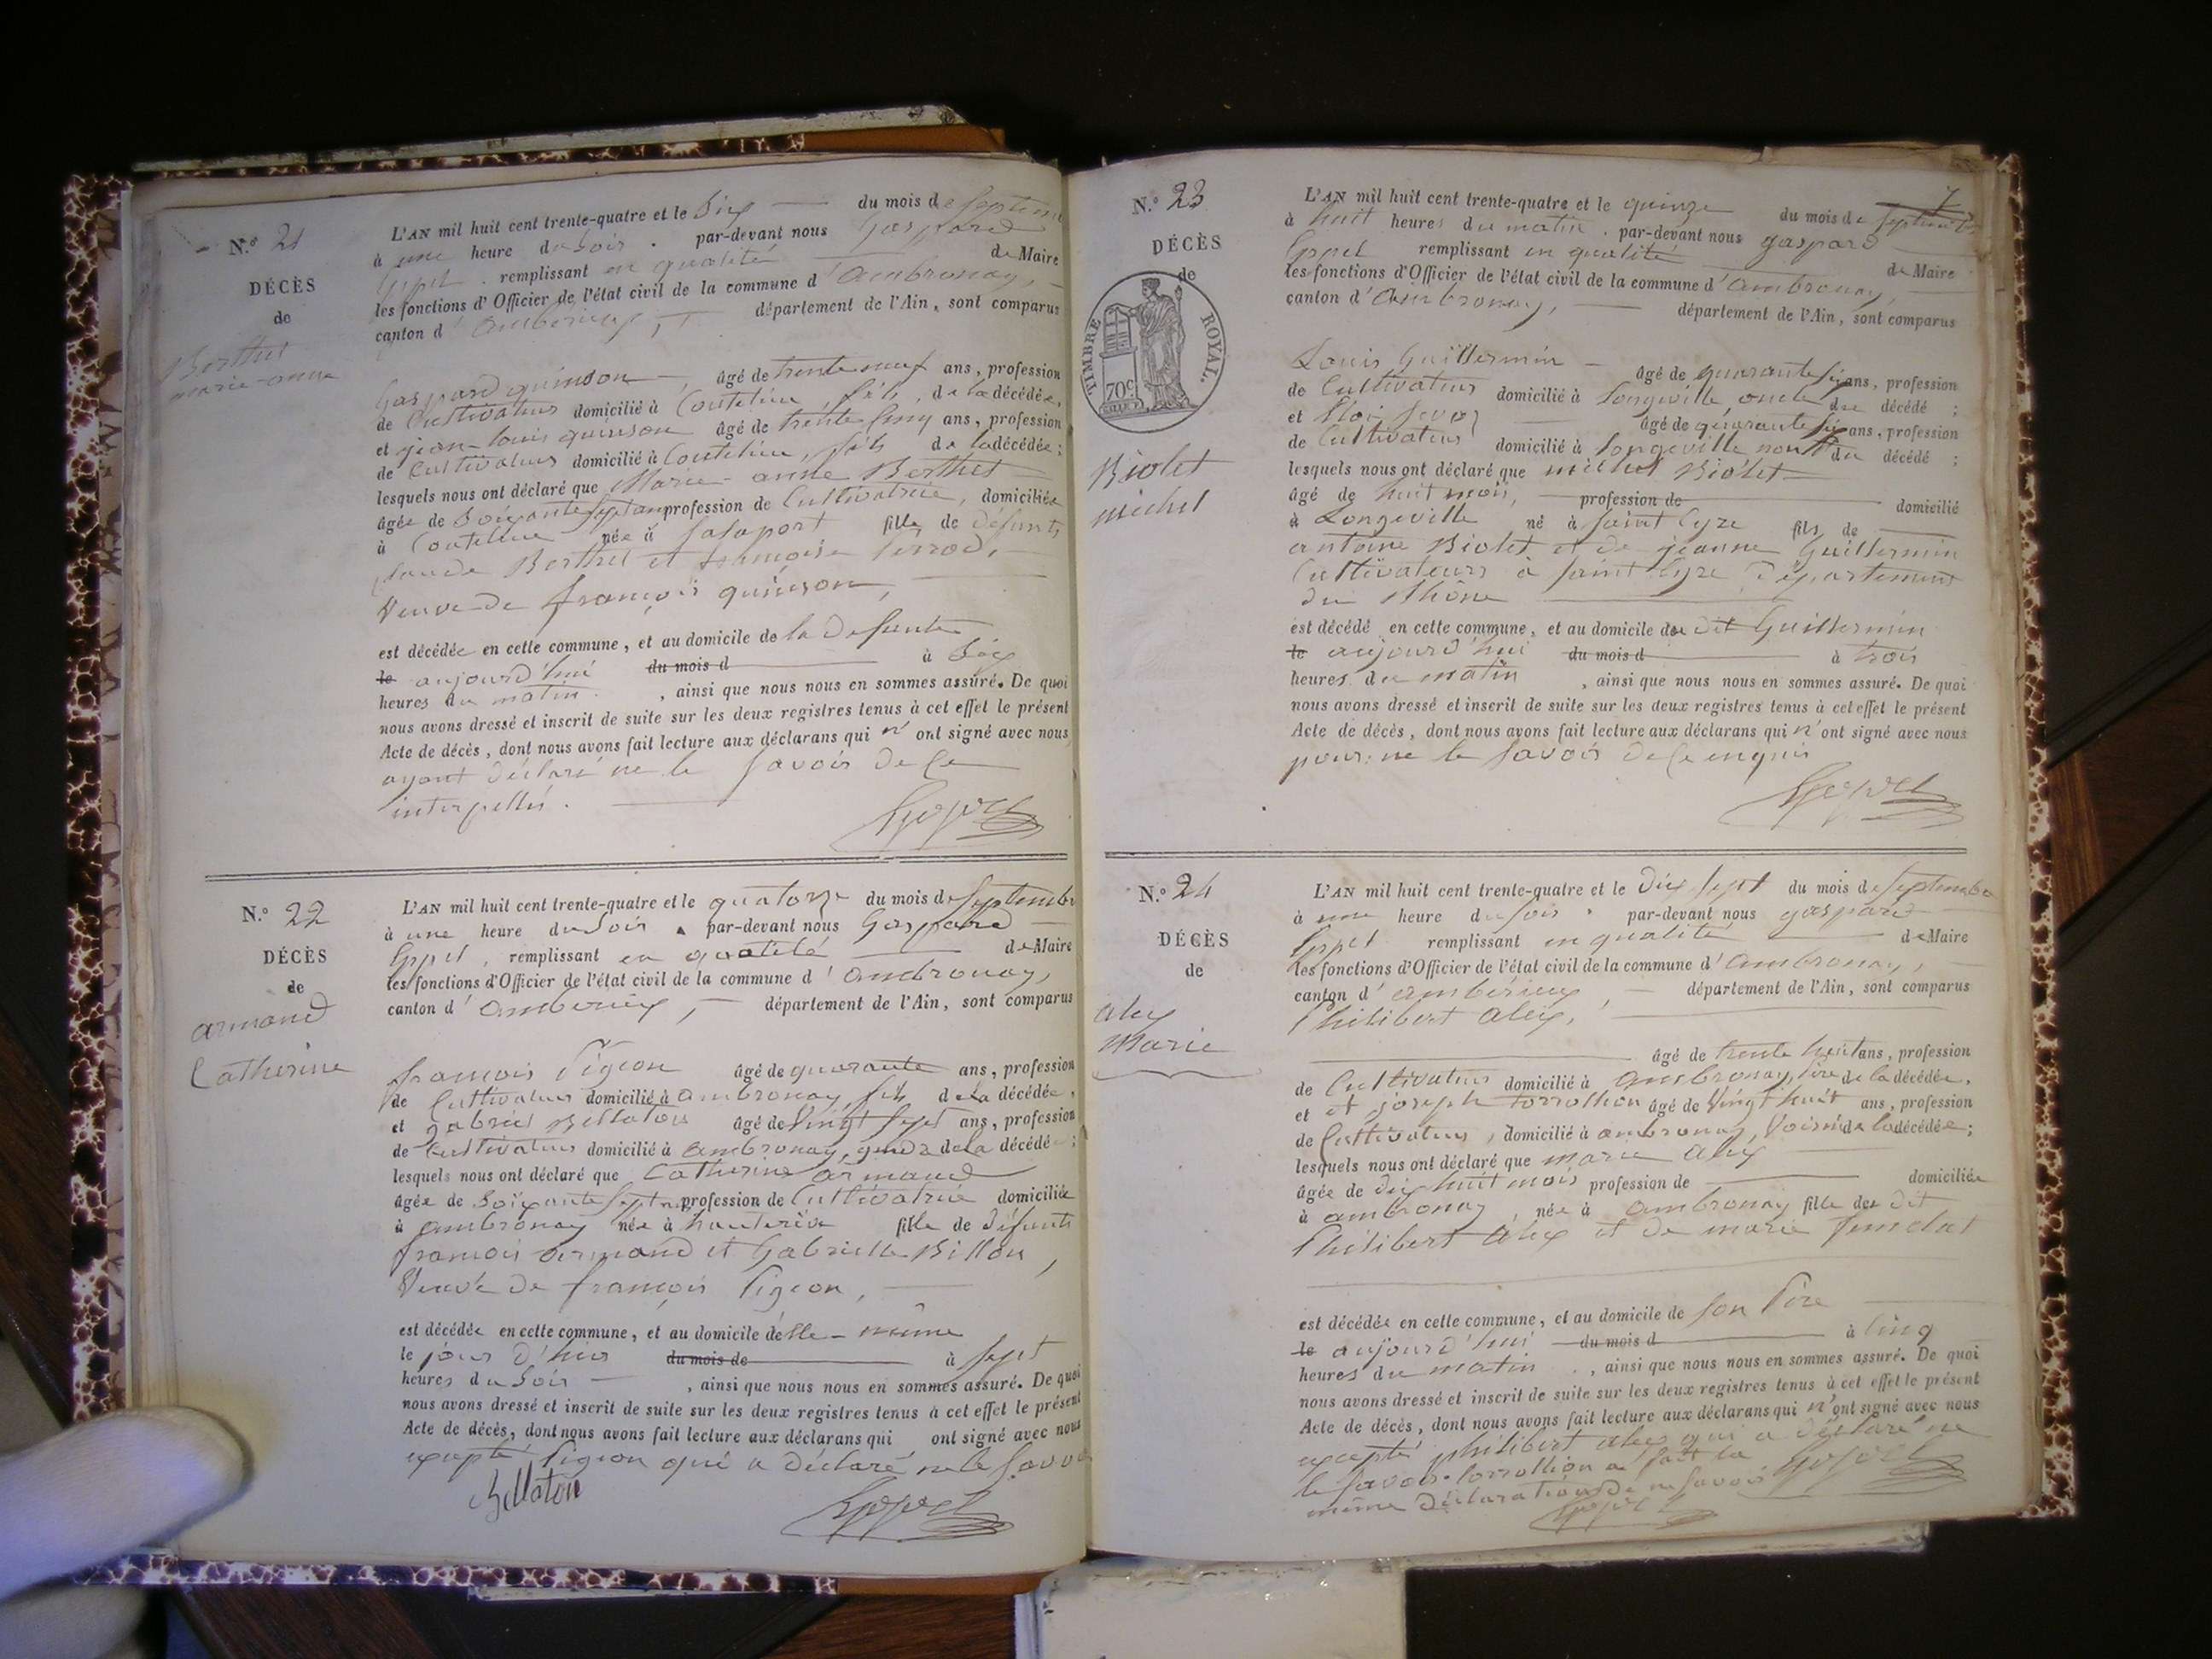 N.° 21
DÉCÈS
de
Berthet
marie-anne
L'AN mil huit cent trente-quatre et le six du mois de septembre
à une heure du soir . par-devant nous Gaspard
remplissant en qualité de Maire
les fonctions d'Officier de l'état civil de la commune d'ambronay,
canton d'ambérieux, département de l'Ain, sont comparus
Gaspard quinson, âgé de trente neuf ans, profession
de Cultivateur domicilié à Coutelieu, fils, de la décédée,
et jean-louis quinson âgé de trente cinq ans, profession
de Cultivateur domicilié à Coutelieu, fils de la décédée;
lesquels nous ont déclaré que Marie-anne Berthet
âgée de soixante sept ans profession de Cultivatrice, domiciliée
à Coutelieu née à fille de défunts
Claude Berthet et françoise
Veuve de françois quinson,
est décédée en cette commune, et au domicile de la defunte
le aujourd'hui du mois d à six
heures du matin , ainsi que nous nous en sommes assuré. De quoi
nous avons dressé et inscrit de suite sur les deux registres tenus à cet effet le présent
Acte de décès, dont nous avons fait lecture aux déclarans qui n'ont signé avec nous
ayant déclaré ne le savoir de ce
interpellés.
N.° 22
DÉCÈS
de
armand
Catherine
L'AN mil huit cent trente-quatre et le quatorze du mois de septembre
à une heure du soir . par-devant nous Gaspard
remplissant en qualité de Maire
les fonctions d'Officier de l'état civil de la commune d'ambronay,
canton d'ambérieux, département de l'Ain, sont comparus
françois Pigeon âgé de quarante ans, profession
de Cultivateur domicilié à ambronay, fils de la décédée,
et gabriel Bellaton âgé de Vingt sept ans, profession
de Cultivateur domicilié à ambronay, gendre de la décédée;
lesquels nous ont déclaré que Catherine armand
âgée de soixante sept ans profession de Cultivatrice domiciliée
à ambronay née à hauterive fille de défunts
françois armand et Gabrielle Billon,
Veuve de françois Pigeon,
est décédée en cette commune, et au domicile d'elle-même
le jour d'hier du mois de à sept
heures du soir , ainsi que nous nous en sommes assuré. De quoi
nous avons dressé et inscrit de suite sur les deux registres tenus à cet effet le présent
Acte de décès, dont nous avons fait lecture aux déclarans qui ont signé avec nous
excepté Pigeon qui a déclaré ne le savoir
Bellaton
N.° 23
DÉCÈS
de
TIMBRE ROYAL.
70c
Biolet
michel
7
L'AN mil huit cent trente-quatre et le quinze du mois de septembre
à huit heures du matin . par-devant nous gaspard
remplissant en qualité de Maire
les fonctions d'Officier de l'état civil de la commune d'ambronay,
canton d'ambronay, département de l'Ain, sont comparus
Louis Guillermin âgé de quarante six ans, profession
de Cultivateur domicilié à Longeville, oncle du décédé;
et âgé de quarante six ans, profession
de Cultivateur domicilié à Longeville du décédé;
lesquels nous ont déclaré que michel Biolet
âgé de huit mois, profession de domicilié
à Longeville né à saint Cyre fils de
antoine Biolet et de jeanne Guillermin
Cultivateurs à saint Cyre, département
du Rhône
est décédé en cette commune, et au domicile du dit Guillermin
le aujourd'hui du mois d à trois
heures du matin , ainsi que nous nous en sommes assuré. De quoi
nous avons dressé et inscrit de suite sur les deux registres tenus à cet effet le présent
Acte de décès, dont nous avons fait lecture aux déclarans qui n'ont signé avec nous
pour ne le savoir de ce enquis
N.° 24
DÉCÈS
de
alex
Marie
L'AN mil huit cent trente-quatre et le dix sept du mois de septembre
à une heure du soir . par-devant nous gaspard
remplissant en qualité de Maire
les fonctions d'Officier de l'état civil de la commune d'ambronay,
canton d'ambérieux, département de l'Ain, sont comparus
Philibert alex,
âgé de trente huit ans, profession
de Cultivateur domicilié à ambronay, père de la décédée,
et et joseph torrollion âgé de Vingt huit ans, profession
de Cultivateur, domicilié à ambronay, Voisin de la décédée;
lesquels nous ont déclaré que marie alex
âgée de dix huit mois profession de domiciliée
à ambronay, née à ambronay fille du dit
Philibert alex et de marie
est décédée en cette commune, et au domicile de son père
le aujourd'hui du mois d à cinq
heures du matin , ainsi que nous nous en sommes assuré. De quoi
nous avons dressé et inscrit de suite sur les deux registres tenus à cet effet le présent
Acte de décès, dont nous avons fait lecture aux déclarans qui n'ont signé avec nous
excepté philibert alex qui a déclaré ne
le savoir. torrollion a fait la
même déclaration de ne savoir